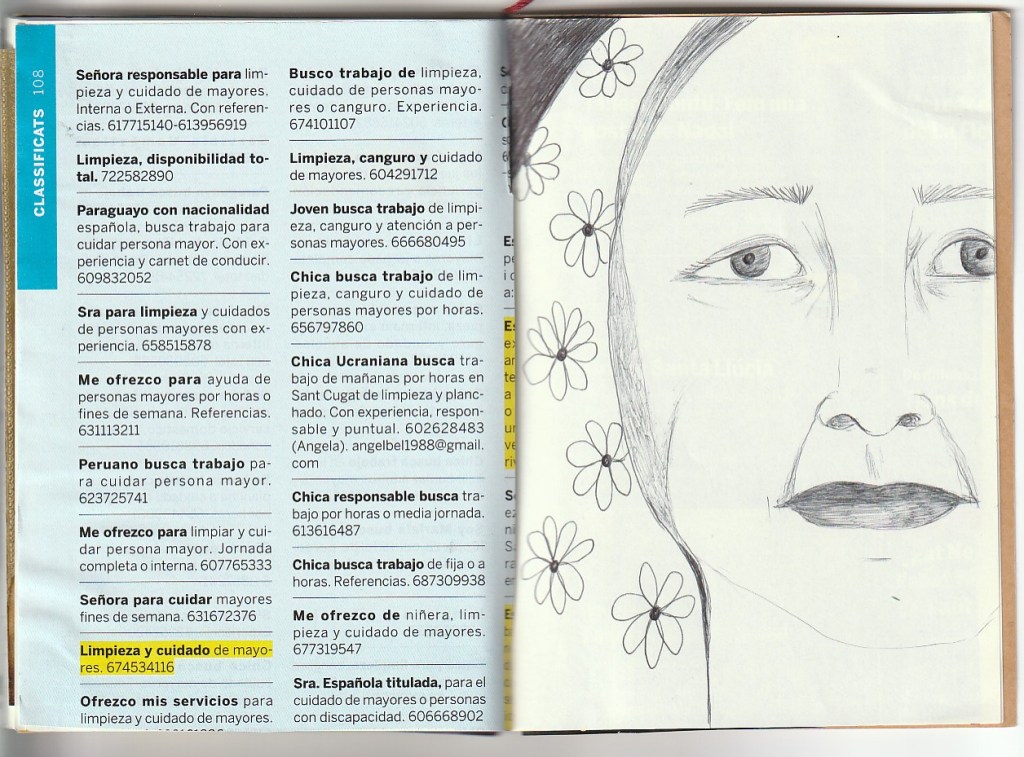 CLASSIFICATS 108
Señora responsable para lim-
pieza y cuidado de mayores.
Interna o Externa. Con referen-
cias. 617715140-613956919
Limpieza, disponibilidad to-
tal. 722582890
Paraguayo con nacionalidad
española, busca trabajo para
cuidar persona mayor. Con ex-
periencia y carnet de conducir.
609832052
Sra para limpieza y cuidados
de personas mayores con ex-
periencia. 658515878
Me ofrezco para ayuda de
personas mayores por horas o
fines de semana. Referencias.
631113211
Peruano busca trabajo pa-
ra cuidar persona mayor.
623725741
Me ofrezco para limpiar y cui-
dar persona mayor. Jornada
completa o interna. 607765333
Señora para cuidar mayores
fines de semana. 631672376
Limpieza y cuidado de mayo-
res. 674534116
Ofrezco mis servicios para
limpieza y cuidado de mayores.
Busco trabajo de limpieza,
cuidado de personas mayo-
res o canguro. Experiencia.
674101107
Limpieza, canguro y cuidado
de mayores. 604291712
Joven busca trabajo de limpi-
eza, canguro y atención a per-
sonas mayores. 666680495
Chica busca trabajo de lim-
pieza, canguro y cuidado de
personas mayores por horas.
656797860
Chica Ucraniana busca tra-
bajo de mañanas por horas en
Sant Cugat de limpieza y planc-
hado. Con experiencia, respon-
sable y puntual. 602628483
(Angela). angelbel1988@gmail.
com
Chica responsable busca tra-
bajo por horas o media jornada.
613616487
Chica busca trabajo de fija o a
horas. Referencias. 687309938
Me ofrezco de niñera, lim-
pieza y cuidado de mayores.
677319547
Sra. Española titulada, para el
cuidado de mayores o personas
con discapacidad. 606668902